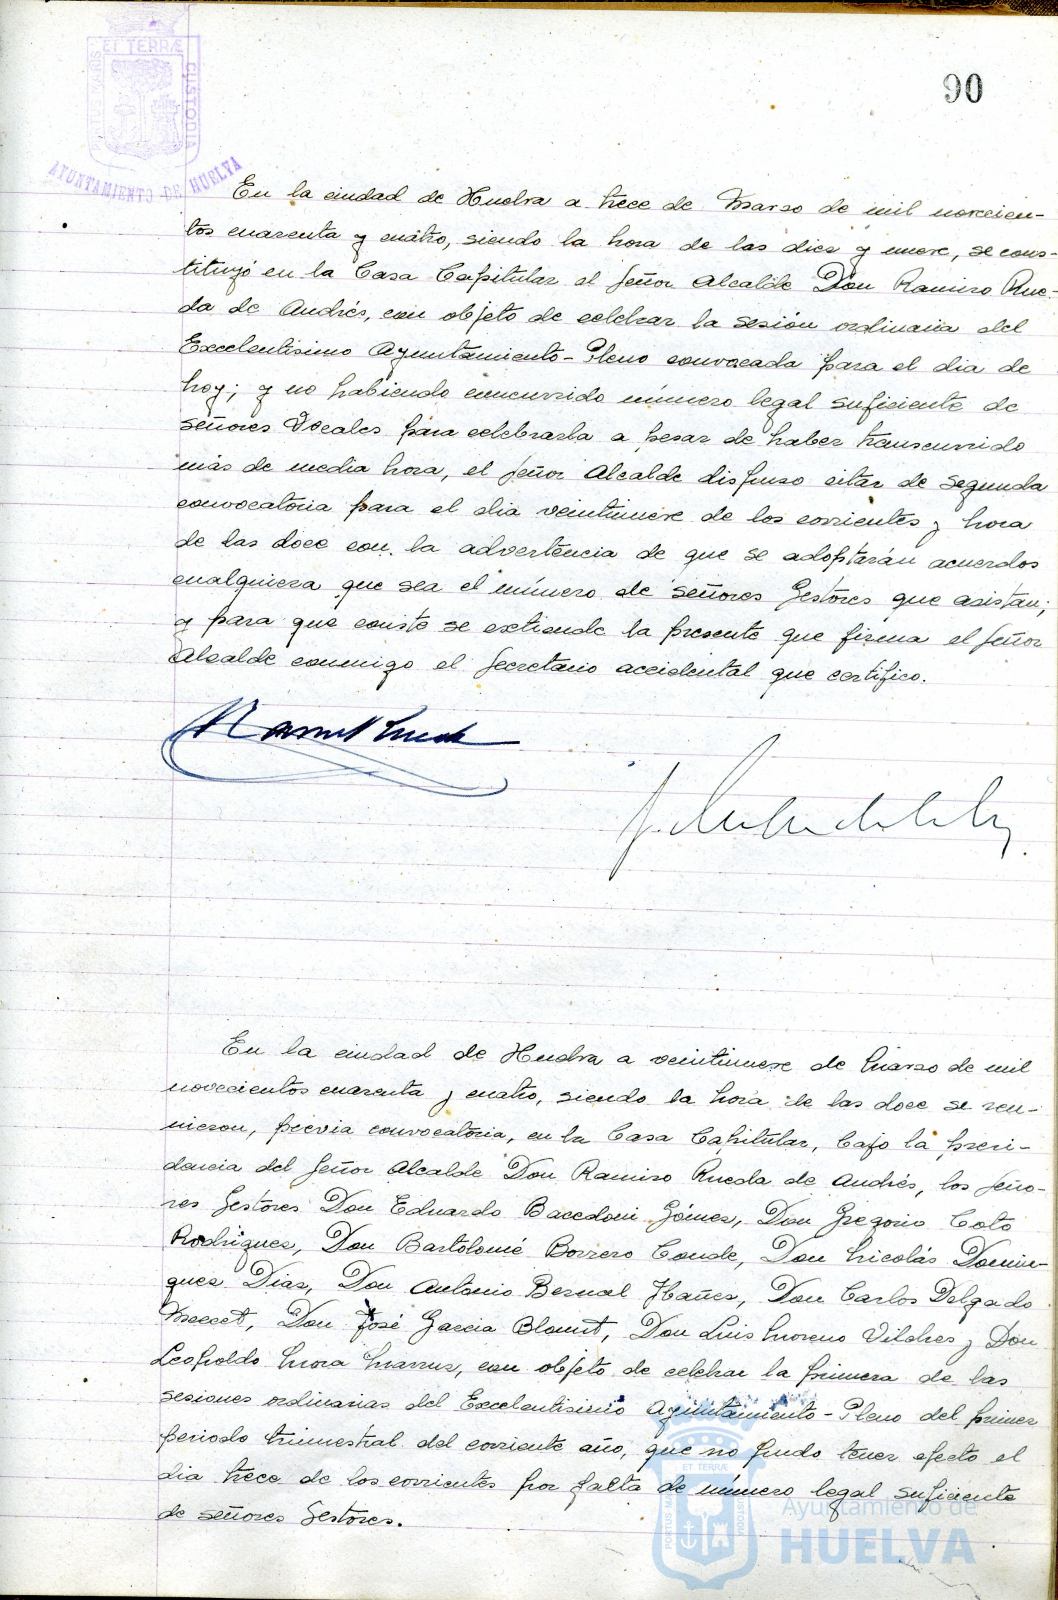 PORTUS MARIS
ET TERRÆ
CUSTODIA
AYUNTAMIENTO DE HUELVA
90
En la ciudad de Huelva a trece de Marzo de mil novecien-
tos cuarenta y cuatro, siendo la hora de las diez y nueve, se cons-
tituyó en la Casa Capitular el Señor Alcalde Don Ramiro Rue-
da de Andrés, con objeto de celebrar la sesión ordinaria del
Excelentísimo Ayuntamiento-Pleno convocada para el dia de
hoy; y no habiendo concurrido número legal suficiente de
señores Vocales para celebrarla a pesar de haber transcurrido
más de media hora, el Señor Alcalde dispuso citar de segunda
convocatoria para el dia veintinueve de los corrientes y hora
de las doce con la advertencia de que se adoptarán acuerdos
cualquiera que sea el número de señores Gestores que asistan;
y para que conste se extiende la presente que firma el Señor
Alcalde conmigo el Secretario accidental que certifico.
En la ciudad de Huelva a veintinueve de Marzo de mil
novecientos cuarenta y cuatro, siendo la hora de las doce se reu-
nieron, previa convocatoria, en la Casa Capitular, bajo la presi-
dencia del Señor Alcalde Don Ramiro Rueda de Andrés, los Seño-
res Gestores Don Eduardo Bacedoni Gómez, Don Gregorio Coto
Rodriguez, Don Bartolomé Borrero Conde, Don Nicolás Domin-
guez Diaz, Don Antonio Bernal Ibañez, Don Carlos Delgado
Don José Garcia Blount, Don Luis Moreno Vildres y Don
Leopoldo Mora con objeto de celebrar la primera de las
sesiones ordinarias del Excelentísimo Ayuntamiento-Pleno del primer
periodo trimestral del corriente año, que no pudo tener efecto el
dia trece de los corrientes por falta de número legal suficiente
de señores Gestores.
PORTUS MARIS
ET TERRÆ
CUSTODIA
Ayuntamiento de
HUELVA